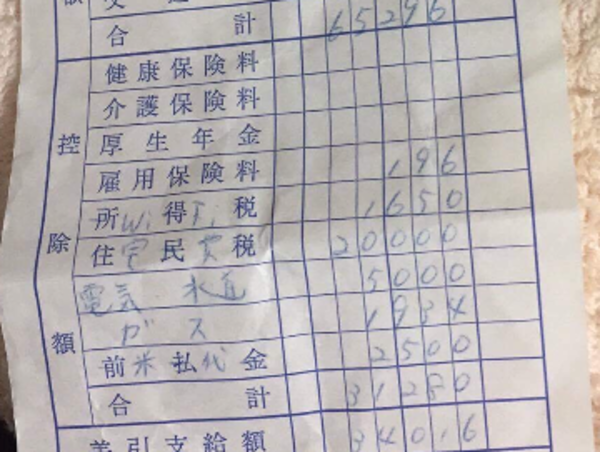 合計 65296
控除額
健康保険料
介護保険料
厚生年金
雇用保険料 196
所得税 Wi Fi 1650
住民税 20000
電気 水道 5000
ガス 1934
前払金 米代 2500
合計 31280
差引支給額 34016